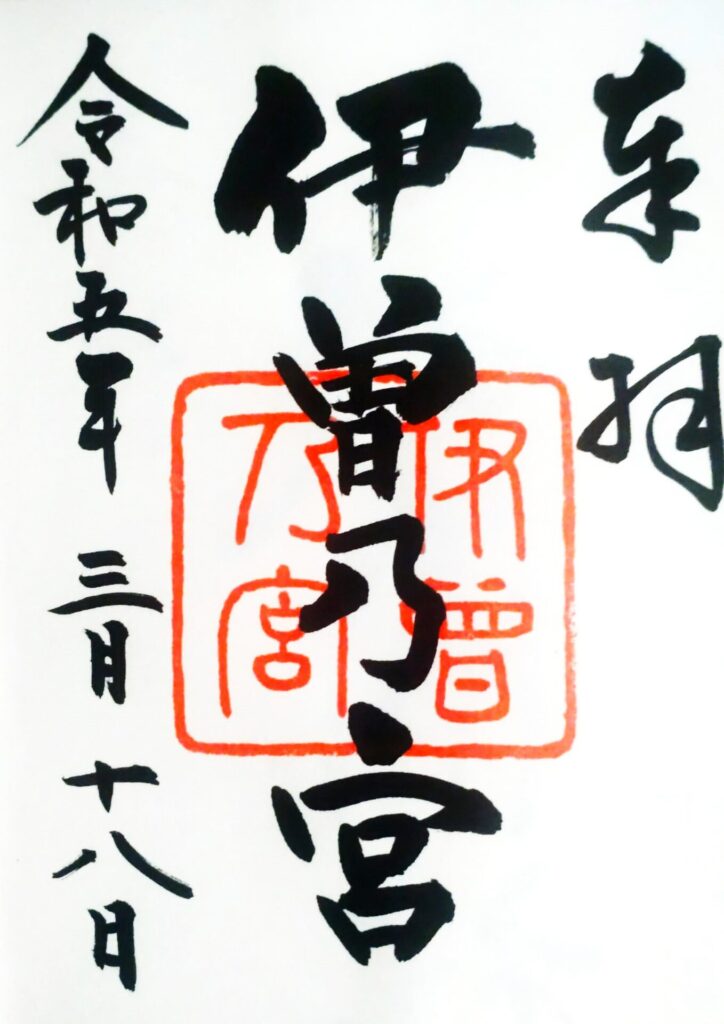 奉拝
伊曽乃宮
伊曽
乃宮
令和五年 三月 十八日